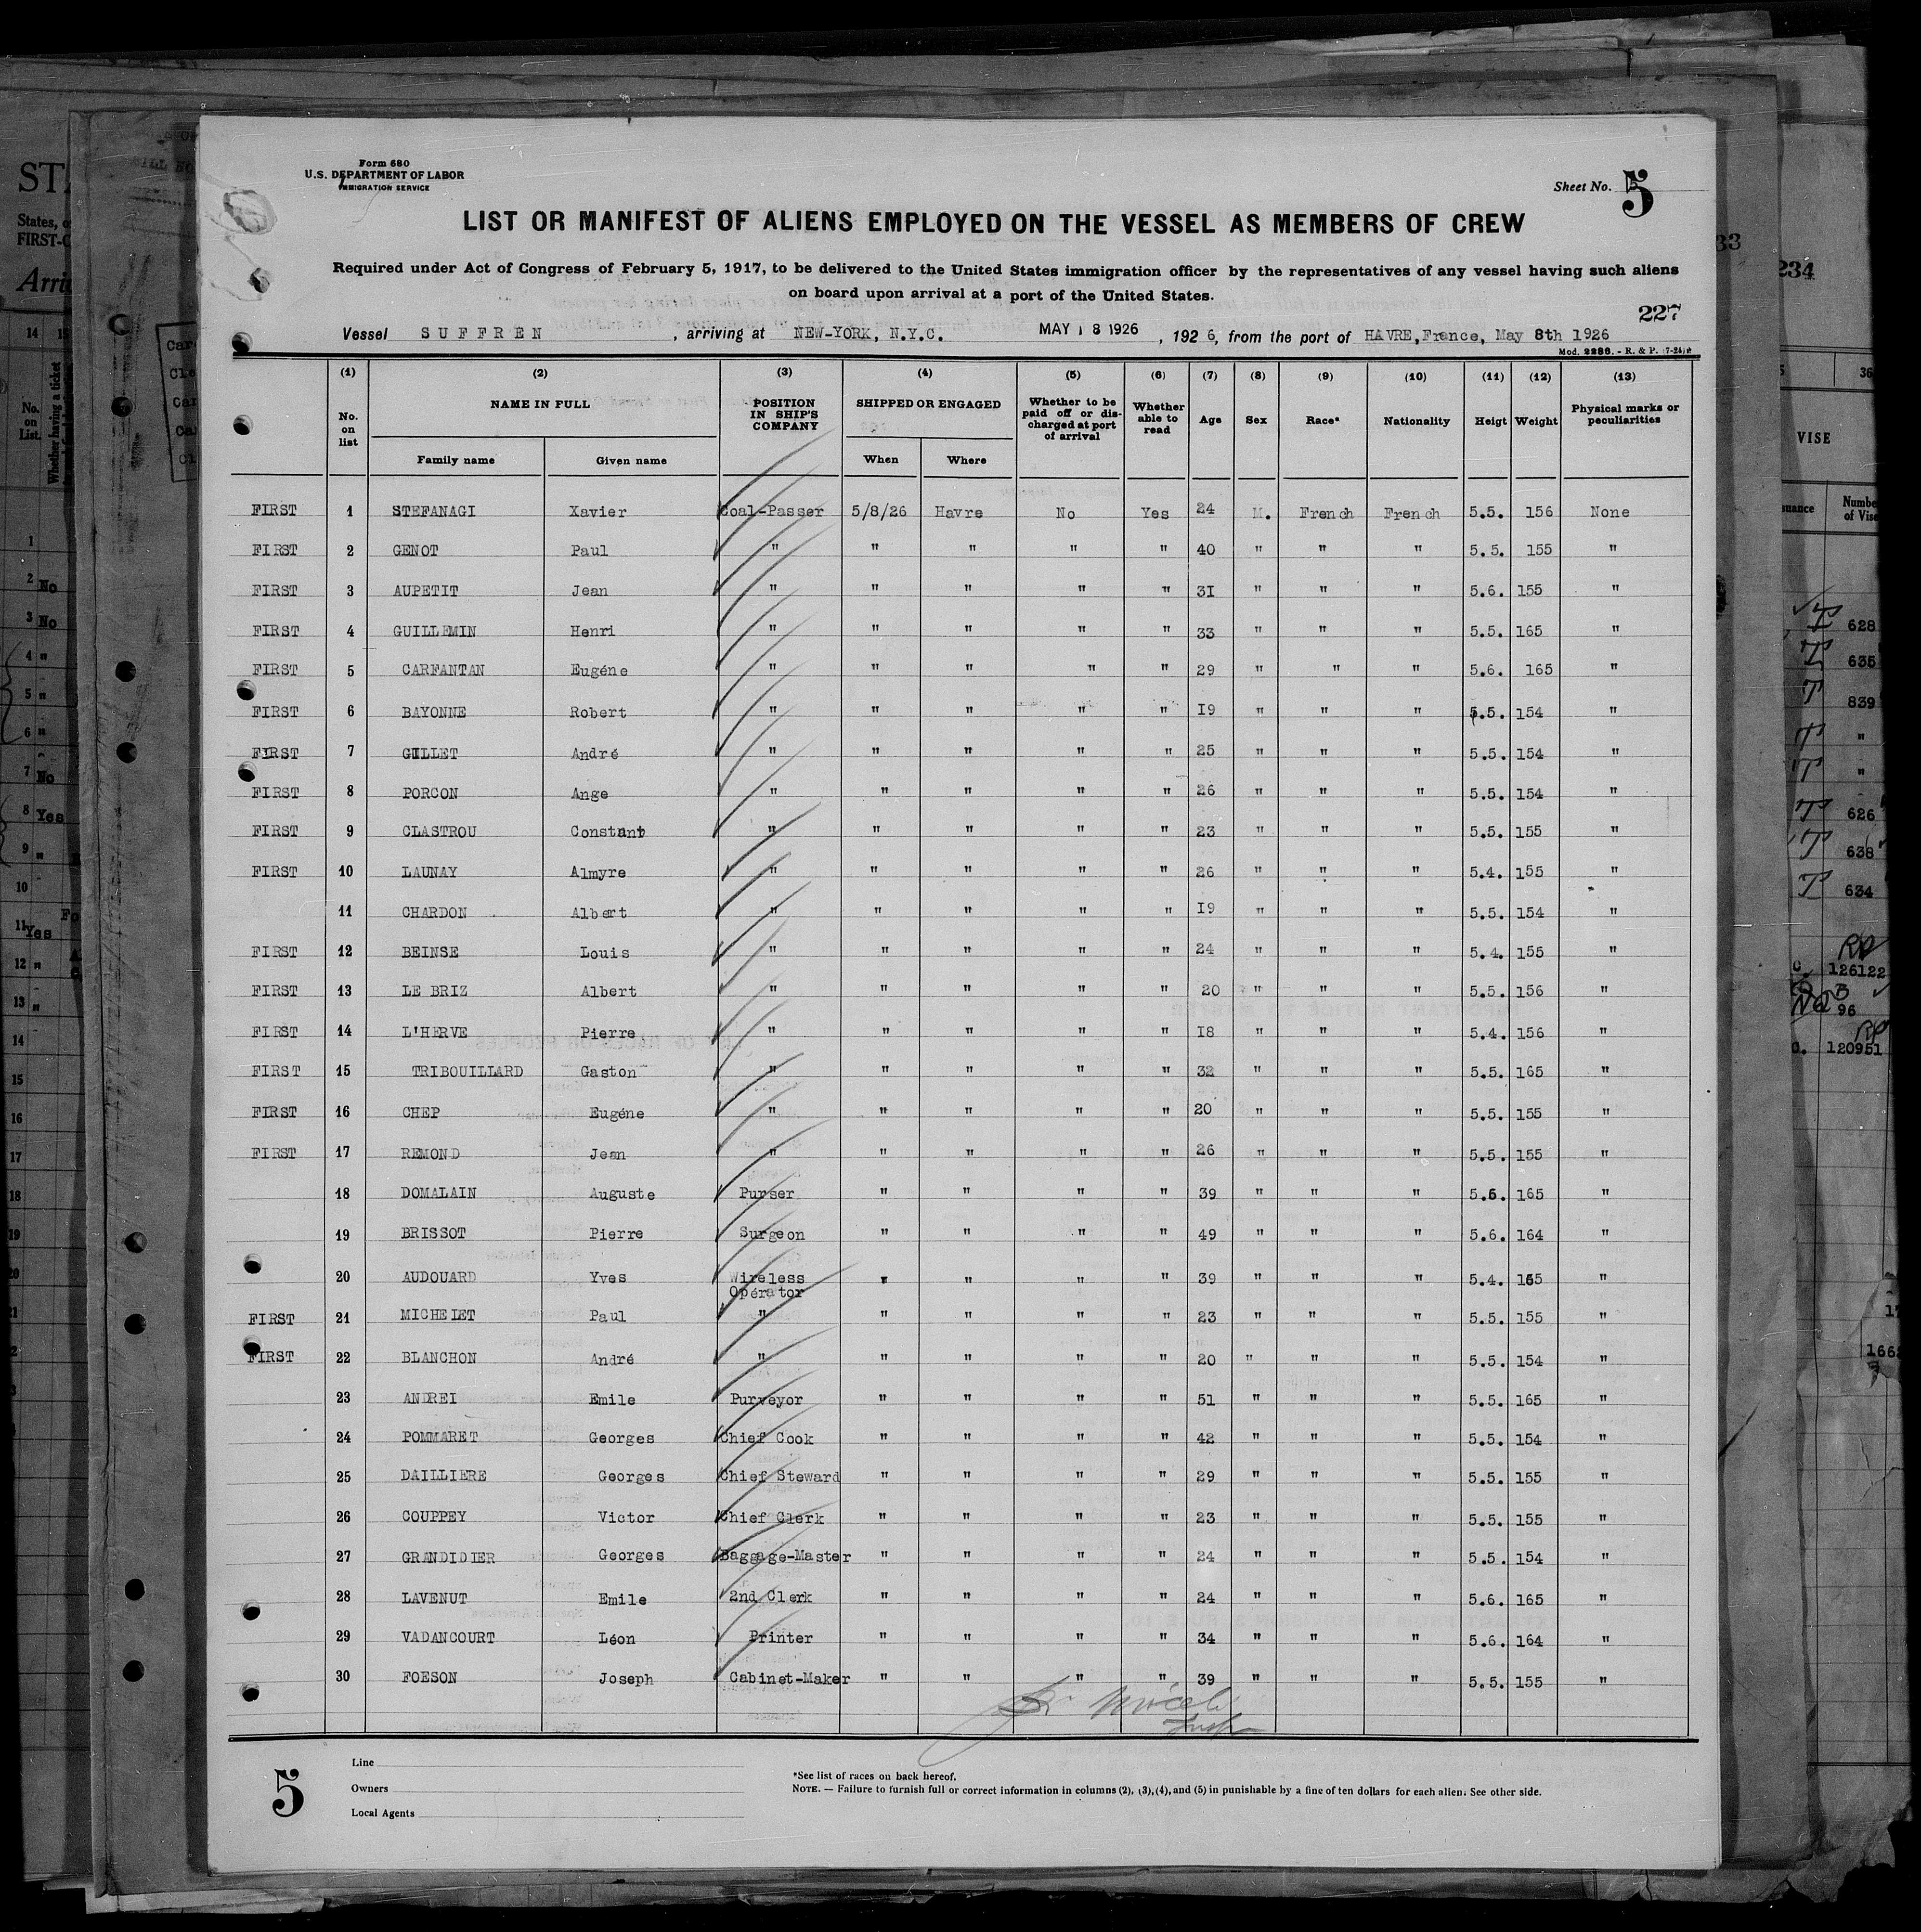 Form 680
U.S. DEPARTMENT OF LABOR
IMMIGRATION SERVICE
Sheet No. 5
LIST OR MANIFEST OF ALIENS EMPLOYED ON THE VESSEL AS MEMBERS OF CREW
Required under Act of Congress of February 5, 1917, to be delivered to the United States immigration officer by the representatives of any vessel having such aliens
on board upon arrival at a port of the United States.
227
Vessel SUFFREN, arriving at NEW-YORK, N.Y.C. MAY 18 1926, 1926, from the port of HAVRE, France, May 8th 1926
Mod. 2286. - R. & P. (7-24)
(1) (2) (3) (4) (5) (6) (7) (8) (9) (10) (11) (12) (13)
No. on list NAME IN FULL POSITION IN SHIP'S COMPANY SHIPPED OR ENGAGED Whether to be paid off or discharged at port of arrival Whether able to read Age Sex Race* Nationality Heigt Weight Physical marks or peculiarities
Family name Given name When Where
FIRST 1 STEFANAGI Xavier Coal-Passer 5/8/26 Havre No Yes 24 M. French French 5.5. 156 None
FIRST 2 GENOT Paul " " " " " 40 " " " 5.5. 155 "
FIRST 3 AUPETIT Jean " " " " " 31 " " " 5.6. 155 "
FIRST 4 GUILLEMIN Henri " " " " " 33 " " " 5.5. 165 "
FIRST 5 CARFANTAN Eugéne " " " " " 29 " " " 5.6. 165 "
FIRST 6 BAYONNE Robert " " " " " 19 " " " 5.5. 154 "
FIRST 7 GILLET André " " " " " 25 " " " 5.5. 154 "
FIRST 8 PORCON Ange " " " " " 26 " " " 5.5. 154 "
FIRST 9 CLASTROU Constant " " " " " 23 " " " 5.5. 155 "
FIRST 10 LAUNAY Almyre " " " " " 26 " " " 5.4. 155 "
11 CHARDON Albert " " " " " 19 " " " 5.5. 154 "
FIRST 12 BEINSE Louis " " " " " 24 " " " 5.4. 155 "
FIRST 13 LE BRIZ Albert " " " " " 20 " " " 5.5. 156 "
FIRST 14 L'HERVE Pierre " " " " " 18 " " " 5.4. 156 "
FIRST 15 TRIBOUILLARD Gaston " " " " " 32 " " " 5.5. 165 "
FIRST 16 CHEP Eugéne " " " " " 20 " " " 5.5. 155 "
FIRST 17 REMOND Jean " " " " " 26 " " " 5.5. 155 "
18 DOMALAIN Auguste Purser " " " " 39 " " " 5.6. 165 "
19 BRISSOT Pierre Surgeon " " " " 49 " " " 5.6. 164 "
20 AUDOUARD Yves Wireless Opérator " " " " 39 " " " 5.4. 165 "
FIRST 21 MICHELET Paul " " " " " 23 " " " 5.5. 155 "
FIRST 22 BLANCHON André " " " " " 20 " " " 5.5. 154 "
23 ANDREI Emile Purveyor " " " " 51 " " " 5.5. 165 "
24 POMMARET Georges Chief Cook " " " " 42 " " " 5.5. 154 "
25 DAILLIERE Georges Chief Steward " " " " 29 " " " 5.5. 155 "
26 COUPPEY Victor Chief Clerk " " " " 23 " " " 5.5. 155 "
27 GRANDIDIER Georges Baggage-Master " " " " 24 " " " 5.5. 154 "
28 LAVENUT Emile 2nd Clerk " " " " 24 " " " 5.6. 165 "
29 VADANCOURT Léon Printer " " " " 34 " " " 5.6. 164 "
30 FOESON Joseph Cabinet-Maker " " " " 39 " " " 5.5. 155 "
5
Line
Owners
Local Agents
*See list of races on back hereof.
NOTE. — Failure to furnish full or correct information in columns (2), (3), (4), and (5) in punishable by a fine of ten dollars for each alien. See other side.